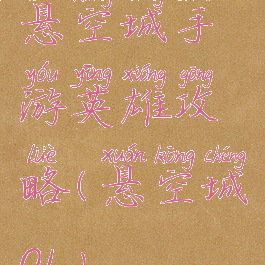 悬空城手
yóu yīng xióng gōng
游英雄攻
lüè xuán kōng chéng
略(悬空城